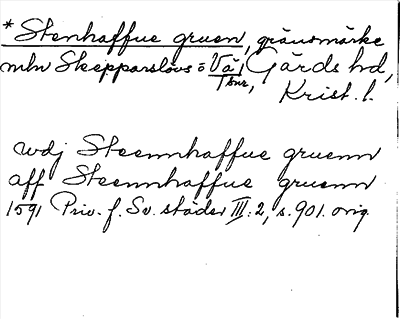 * Stenhaffue gruen, gränsmärke
mln Skepparslövs o Vä,
1 bnr,
Gärds hd,
Krist. l.
udj Steennhaffue gruenn
aff Steennhaffue gruenn
1591 Priv. f. Sv. städer III:2, s. 901. orig.